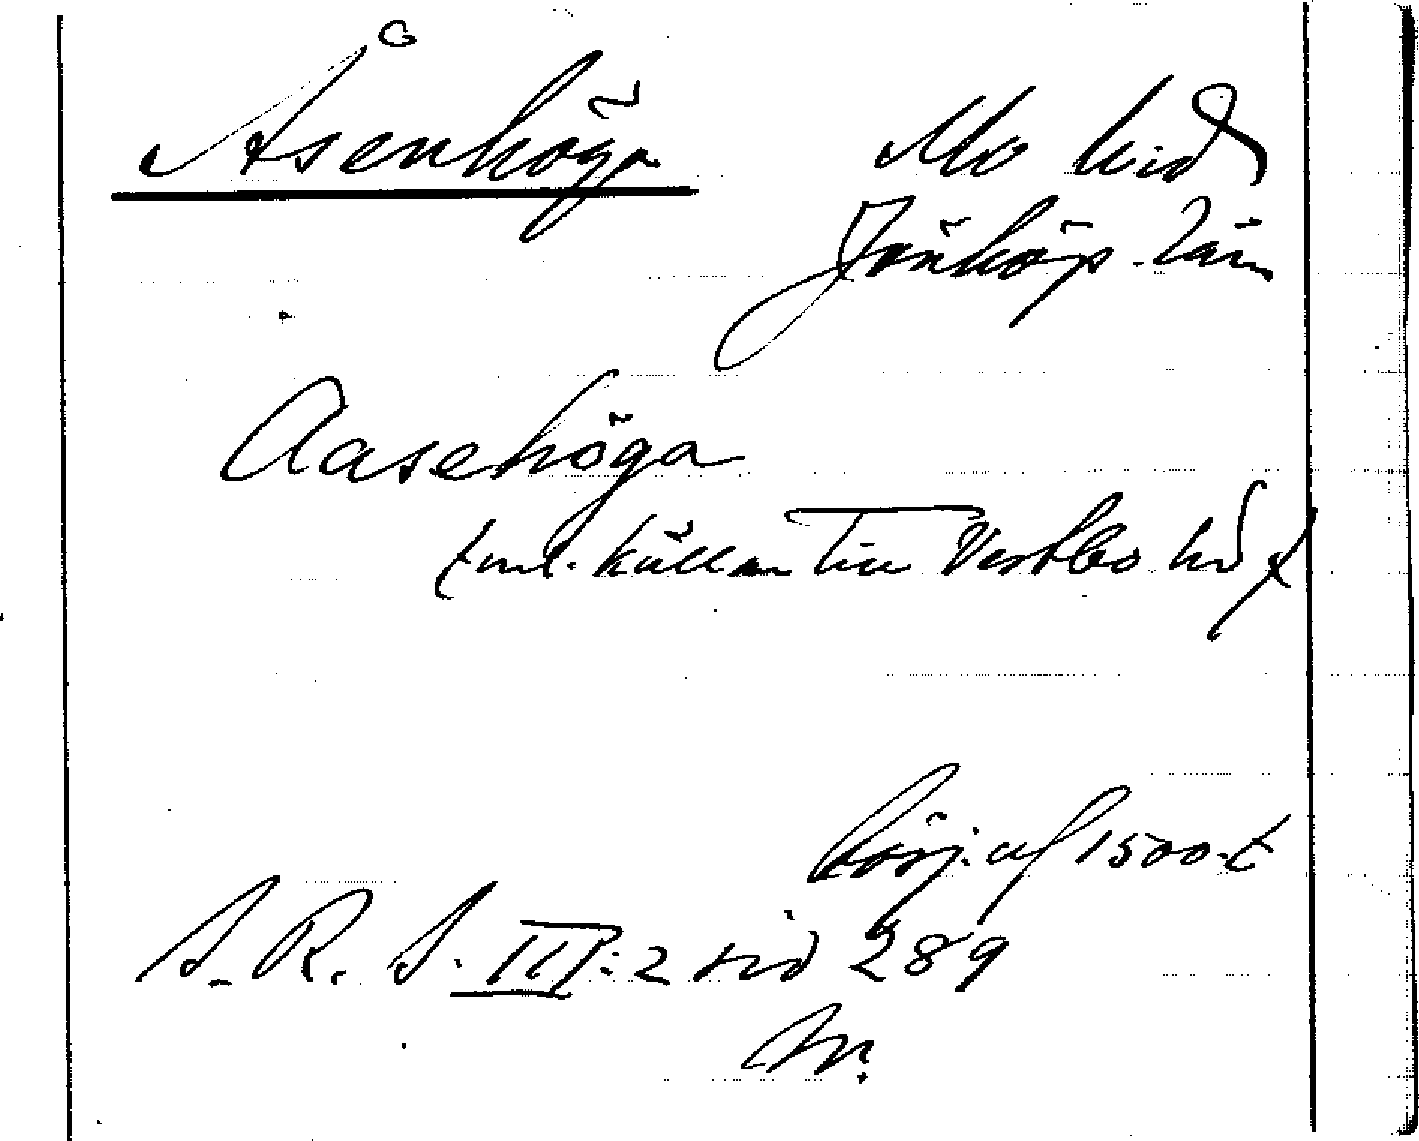 Åsenhöga
Mo hd
Jönköp. län
Aasehöga
enl. källan till Vestbo hd
börj. af 1500-t
S. R. S. III:2 sid 289